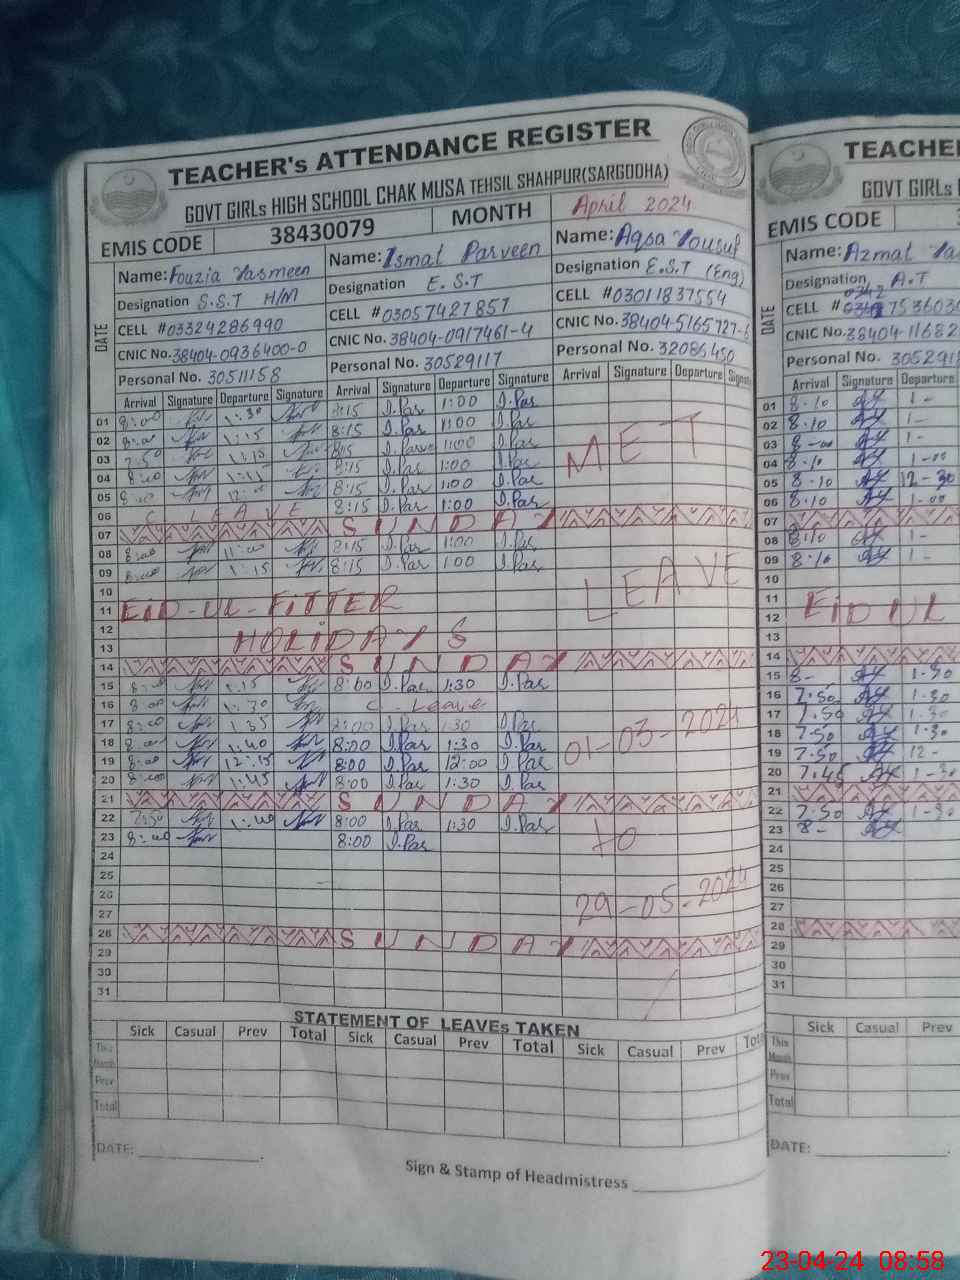 TEACHER's ATTENDANCE REGISTER
GOVT GIRLs HIGH SCHOOL CHAK MUSA TEHSIL SHAHPUR(SARGODHA)
EMIS CODE 38430079 MONTH April 2024
DATE
Name: Fouzia Yasmeen
Designation S.S.T H/M
CELL #03324286990
CNIC No. 38404-0936400-0
Personal No. 30511158
Name: Ismat Parveen
Designation E.S.T
CELL #03057427857
CNIC No. 38404-0917461-4
Personal No. 30529117
Name: Aqsa Yousuf
Designation E.S.T (Eng)
CELL #03011837554
CNIC No. 38404-5165727-6
Personal No. 32086450
Arrival Signature Departure Signature Arrival Signature Departure Signature Arrival Signature Departure
01 8:00 1:30 8:15 I.Par 1:00 I.Par
02 8:00 1:15 8:15 I.Par 1:00 I.Par
03 7:50 1:15 8:15 1:00 I.Par
04 8:00 1:15 8:15 I.Par 1:00 I.Par
05 8:00 12:00 8:15 I.Par 1:00 I.Par
06 C LEAVE 8:15 I.Par 1:00 I.Par
07 SUNDAY
08 8:00 11:00 8:15 I.Par 1:00 I.Par
09 8:00 1:15 8:15 I.Par 1:00 I.Par
10
11 EID-UL-FITTER
12
13 HOLIDAYS
14 SUNDAY
15 8:00 1:15 8:00 I.Par 1:30 I.Par
16 8:00 1:30 C-Leave
17 8:00 1:35 8:00 I.Par 1:30 I.Par
18 8:00 1:40 8:00 I.Par 1:30 I.Par
19 8:00 12:15 8:00 I.Par 12:00 I.Par
20 8:00 1:45 8:00 I.Par 1:30 I.Par
21 SUNDAY
22 7:50 1:40 8:00 I.Par 1:30 I.Par
23 8:00 8:00 I.Par
24
25
26
27
28 SUNDAY
29
30
31
MET
LEAVE
01-03-2024
to
29-05-2024
STATEMENT OF LEAVEs TAKEN
Sick Casual Prev Total Sick Casual Prev Total Sick Casual Prev
This Month
Prev
Total
DATE:
Sign & Stamp of Headmistress
TEACHER
GOVT GIRLs
EMIS CODE
DATE
Name: Azmat
Designation A.T
0342
CELL # 7536030
CNIC No. 38404-11682
Personal No. 305291
Arrival Signature Departure
01 8.10 1-
02 8.10 1-
03 8-00 1-
04 8.10 1-00
05 8.10 12-30
06 8.10 1-00
07
08 8.10 1-
09 8.10 1-
10
11 EID UL
12
13
14
15 8- 1.30
16 7.50 1-30
17 7.50 1-30
18 7.50 1.30
19 7.50 12-
20 7.45 1-30
21
22 7.50 1-30
23 8-
24
25
26
27
28
29
30
31
Sick Casual Prev
This Month
Prev
Total
DATE:
23-04-24 08:58